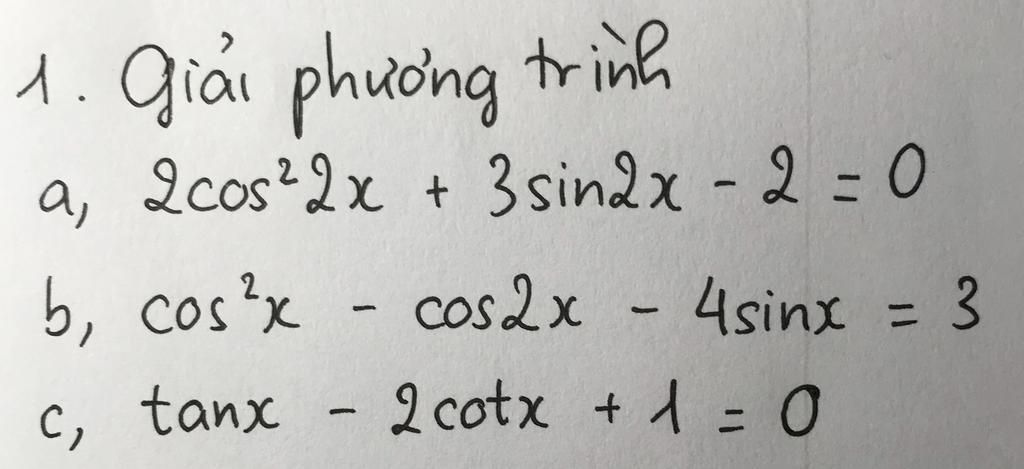 1. Giải phương trình
a, 2cos²2x + 3sin2x - 2 = 0
b, cos²x - cos2x - 4sinx = 3
c, tanx - 2cotx + 1 = 0